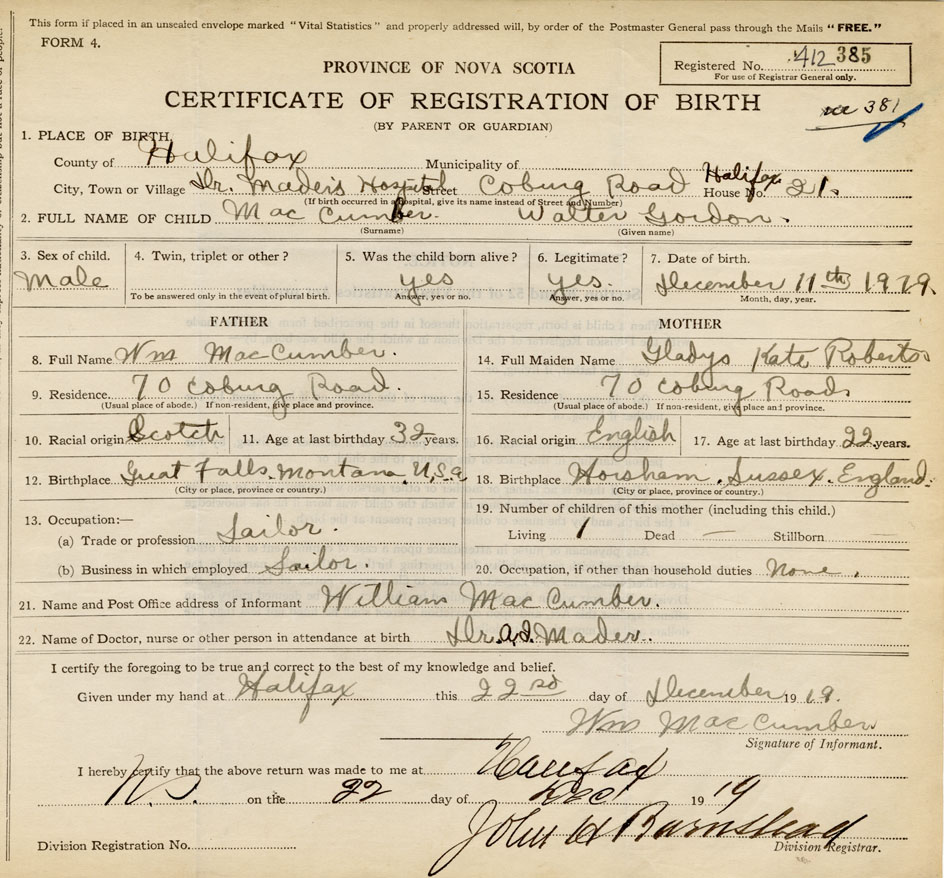 This form if placed in an unsealed envelope marked "Vital Statistics" and properly addressed will, by order of the Postmaster General pass through the Mails "FREE."
FORM 4.
Registered No. 412 385
For use of Registrar General only.
PROVINCE OF NOVA SCOTIA
CERTIFICATE OF REGISTRATION OF BIRTH
381
(BY PARENT OR GUARDIAN)
1. PLACE OF BIRTH,
County of Halifax Municipality of
City, Town or Village Dr. Mader's Hospital Street Coburg Road Halifax House No. 21.
(If birth occurred in a hospital, give its name instead of Street and Number)
2. FULL NAME OF CHILD Mac Cumber. Walter Gordon.
(Surname) (Given name)
3. Sex of child. 4. Twin, triplet or other? 5. Was the child born alive? 6. Legitimate? 7. Date of birth.
Male yes yes. December 11th 1919.
To be answered only in the event of plural birth. Answer, yes or no. Answer, yes or no. Month, day, year.
FATHER MOTHER
8. Full Name Wm Mac Cumber. 14. Full Maiden Name Gladys Kate Roberts
9. Residence. 70 Coburg Road. 15. Residence 70 Coburg Road
(Usual place of abode.) If non-resident, give place and province. (Usual place of abode.) If non-resident, give place and province.
10. Racial origin Scotch 11. Age at last birthday 32 years. 16. Racial origin English 17. Age at last birthday 22 years.
12. Birthplace Great Falls. Montana. U.S.a 18. Birthplace Horsham. Sussex. England.
(City or place, province or country.) (City or place, province or country.)
13. Occupation:— 19. Number of children of this mother (including this child.)
(a) Trade or profession Sailor. Living 1 Dead — Stillborn —
(b) Business in which employed Sailor. 20. Occupation, if other than household duties None.
21. Name and Post Office address of Informant William Mac Cumber.
22. Name of Doctor, nurse or other person in attendance at birth Dr. A.I. Mader.
I certify the foregoing to be true and correct to the best of my knowledge and belief.
Given under my hand at Halifax this 22nd day of December 1919.
Wm Mac Cumber
Signature of Informant.
I hereby certify that the above return was made to me at Halifax
N.S. on the 22 day of Dec 1919
John H Barnstead
Division Registration No. Division Registrar.